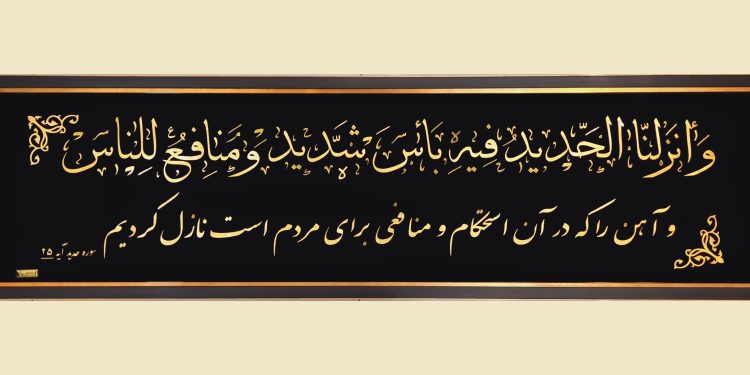 وَأَنزَلنَا الحَدِيدَ فِيهِ بَأسٌ شَدِيدٌ وَمَنَافِعُ لِلنَّاسِ
و آهن را که در آن استحکام و منافعی برای مردم است نازل کردیم
سوره حدید آیه ۲۵